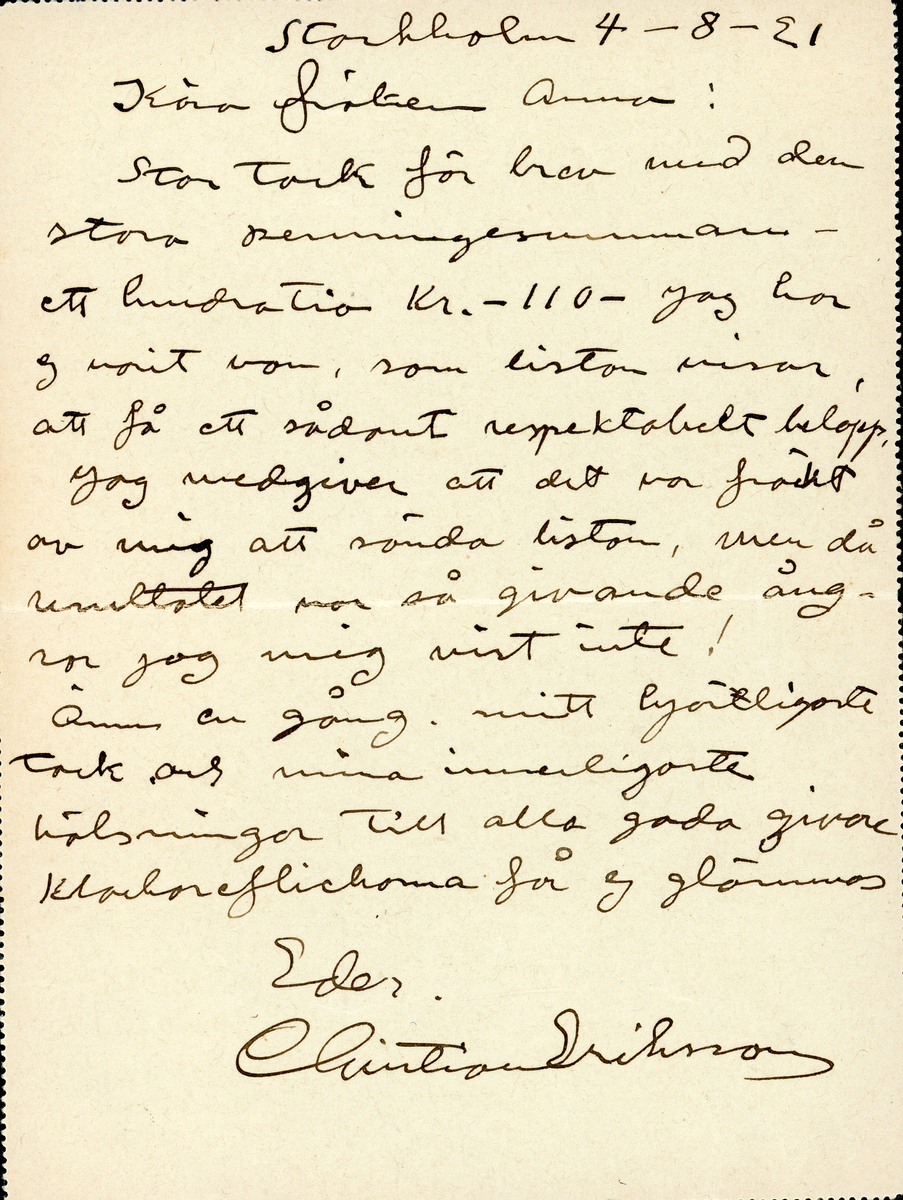 Stockholm 4 – 8 – 21
Kära fröken Anna :
Stor tack för brev med den
stora penningesumman –
ett hundratio Kr. – 110 – Jag har
ej varit van, som listan visar,
att få ett sådant respektabelt belopp,
Jag medgiver att det var fräckt
av mig att sända listan, men då
resultatet var så givande ång-
rar jag mig visst inte !
Ännu en gång. mitt hjärtligaste
tack och mina innerligaste
hälsningar till alla goda givare
får ej glömmas
Eder.
Christian Eriksson